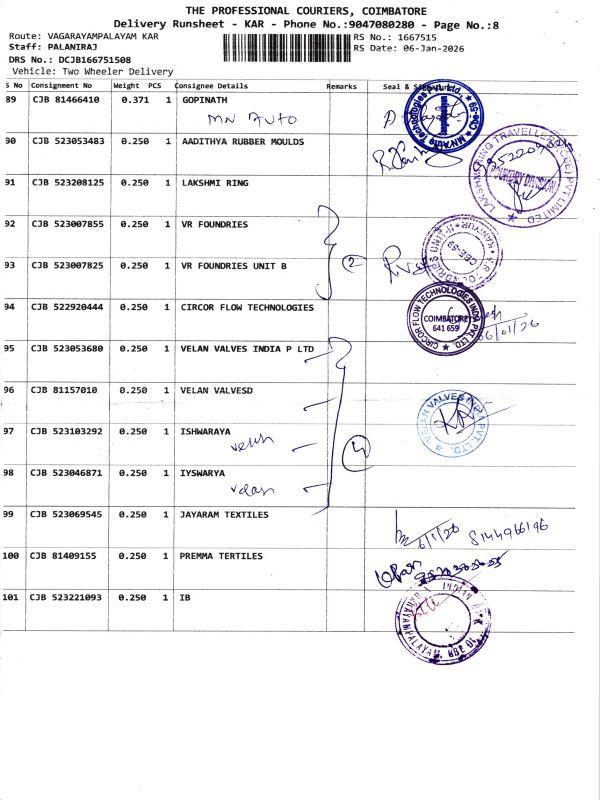 THE PROFESSIONAL COURIERS, COIMBATORE
Delivery Runsheet - KAR - Phone No.:9047080280 - Page No.:8
Route: VAGARAYAMPALAYAM KAR
RS No.: 1667515
Staff: PALANIRAJ
RS Date: 06-Jan-2026
DRS No.: DCJB166751508
Vehicle: Two Wheeler Delivery
S No Consignment No Weight PCS Consignee Details Remarks Seal &
89 CJB 81466410 0.371 1 GOPINATH
MN AUTO
90 CJB 523053483 0.250 1 AADITHYA RUBBER MOULDS
91 CJB 523208125 0.250 1 LAKSHMI RING
92 CJB 523007855 0.250 1 VR FOUNDRIES
2
93 CJB 523007825 0.250 1 VR FOUNDRIES UNIT B
94 CJB 522920444 0.250 1 CIRCOR FLOW TECHNOLOGIES
CIRCOR FLOW TECHNOLOGIES INDIA PVT. LTD.
COIMBATORE
641 659
06/01/26
95 CJB 523053680 0.250 1 VELAN VALVES INDIA P LTD
96 CJB 81157010 0.250 1 VELAN VALVESD
VELAN VALVES INDIA PVT. LTD.
97 CJB 523103292 0.250 1 ISHWARAYA
4
98 CJB 523046871 0.250 1 IYSWARYA
velan
99 CJB 523069545 0.250 1 JAYARAM TEXTILES
6/1/26 8144966196
100 CJB 81409155 0.250 1 PREMMA TERTILES
101 CJB 523221093 0.250 1 IB